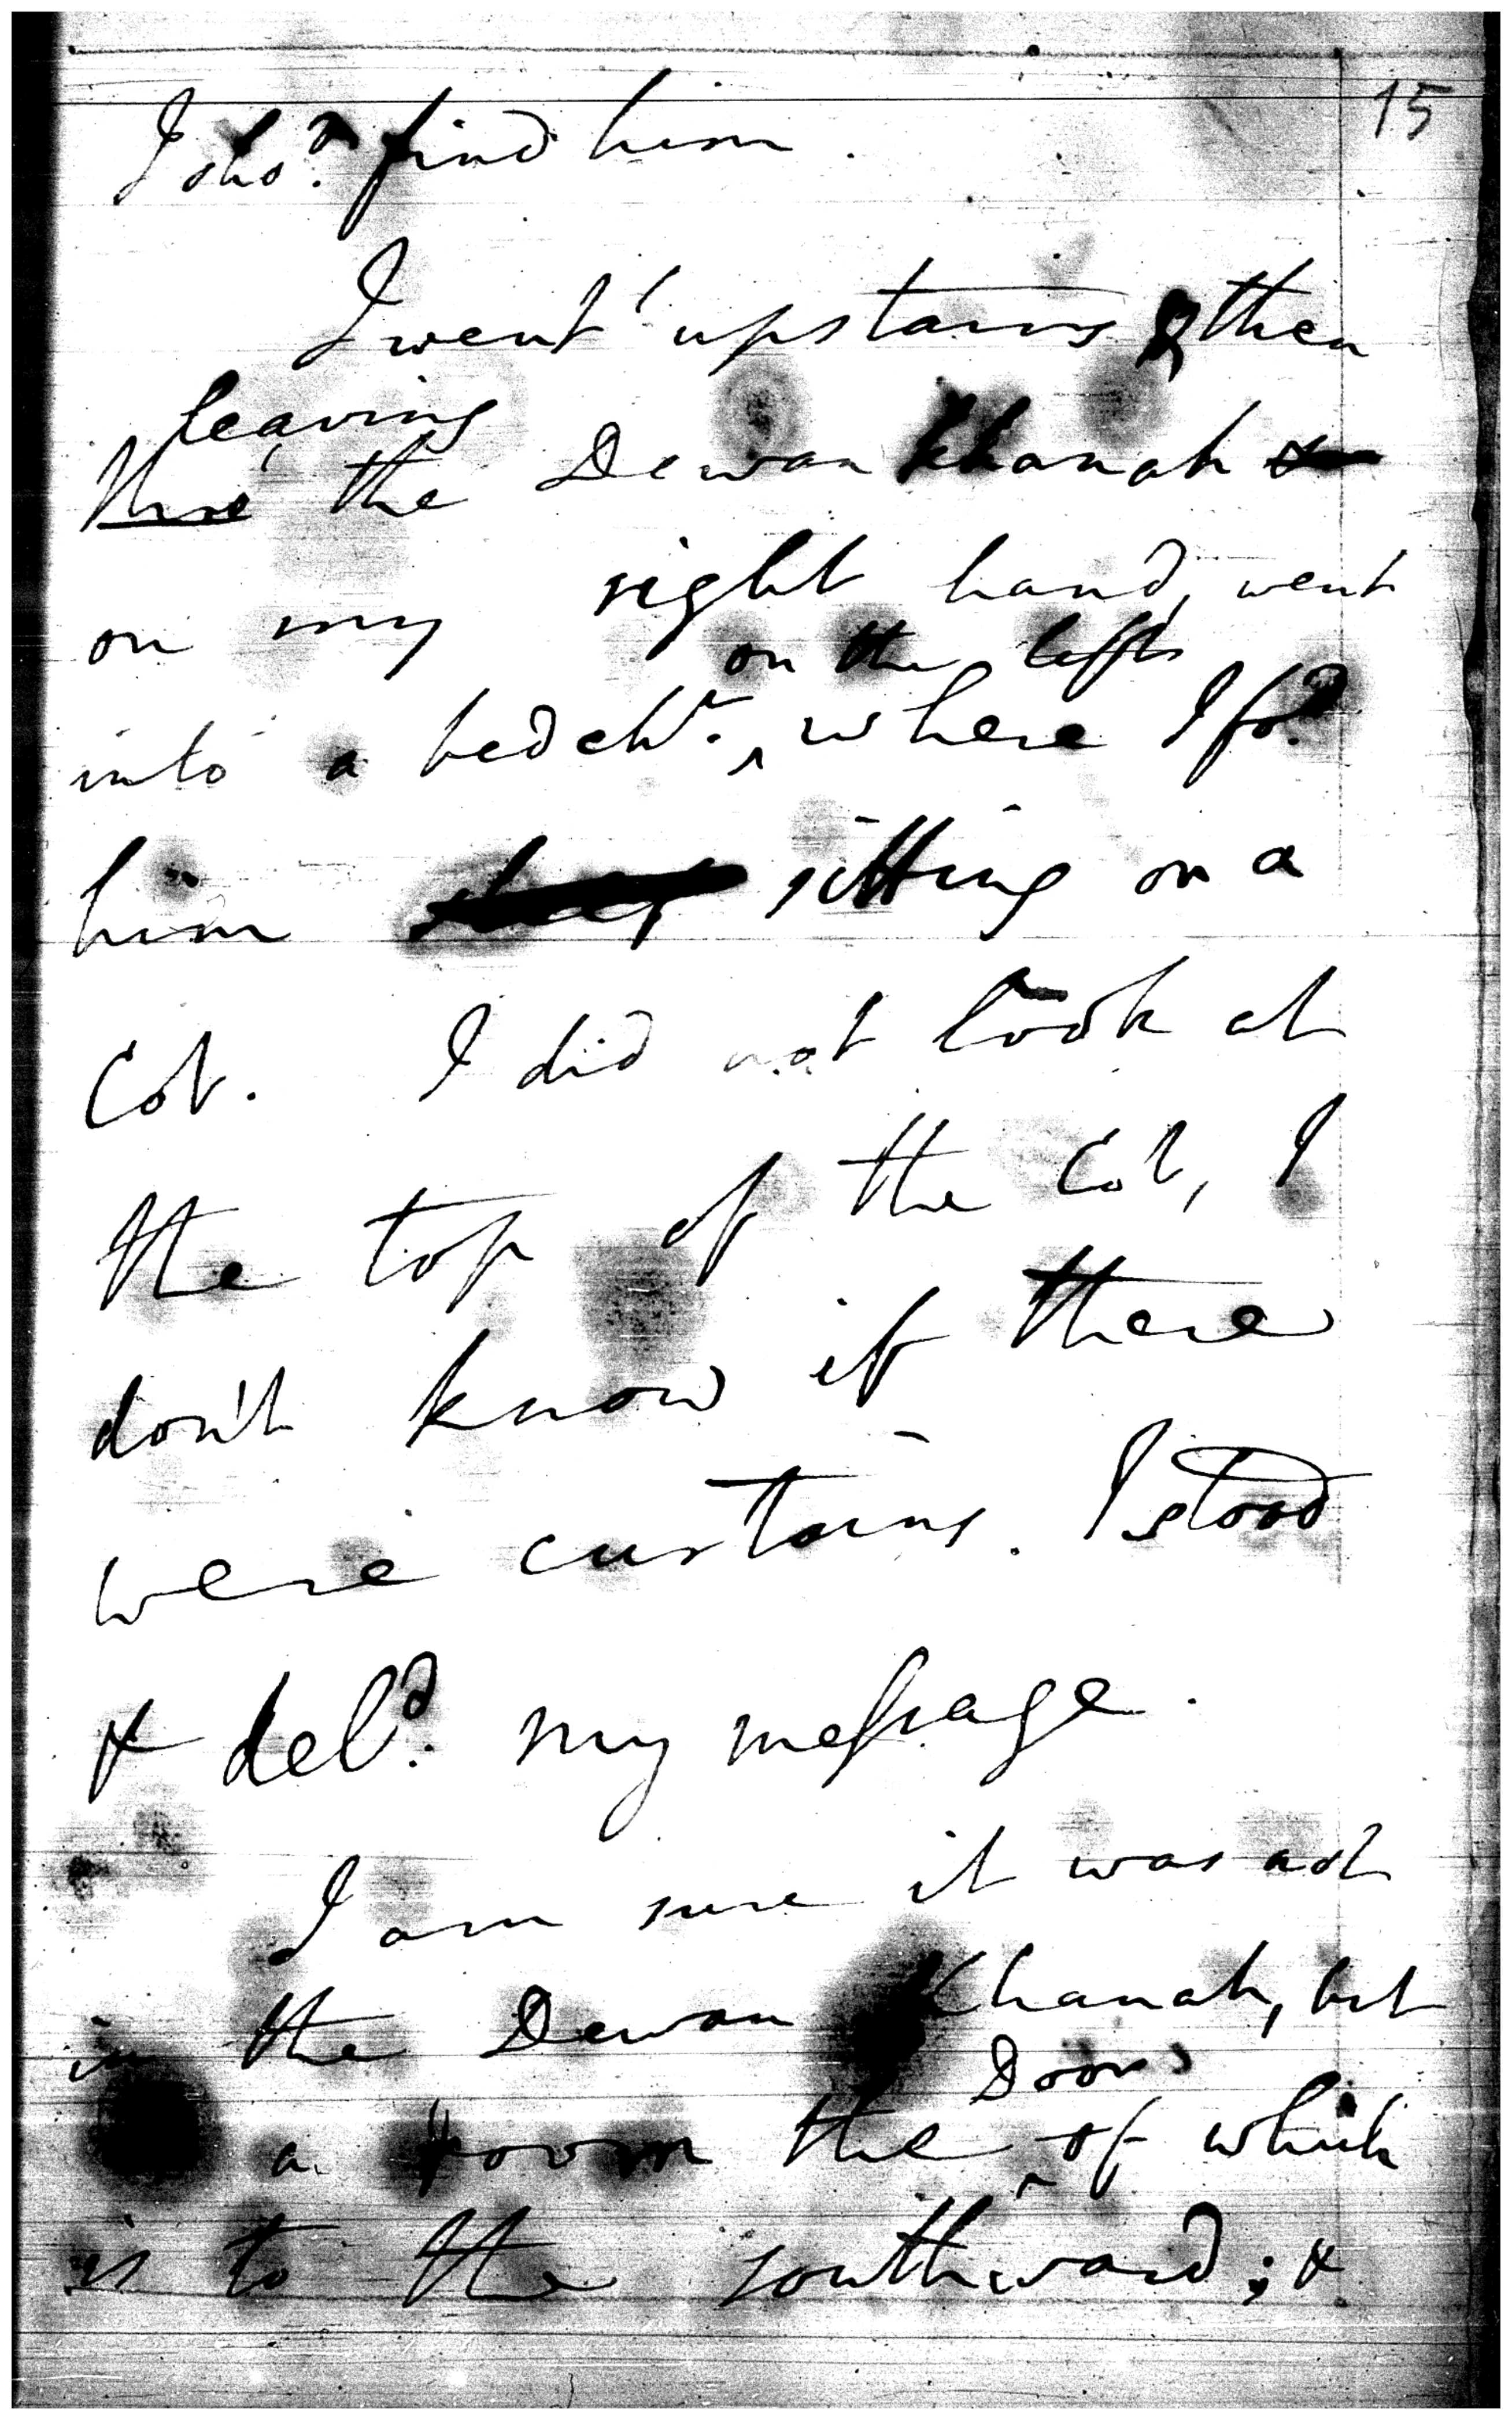 15
I sho.d find him.
I went upstairs & then
leaving
thro' the Dewan Khanah &
on my right hand, went
on the left
into a bedch.r, where I fo.d
him sitting on a
Cot. I did not look at
the top of the Cot, I
don't know if there
were curtains. I stood
& del.d my message.
I am sure it was not
in the Dewan Khanah, but
Door
a room the of which
is to the southward; &